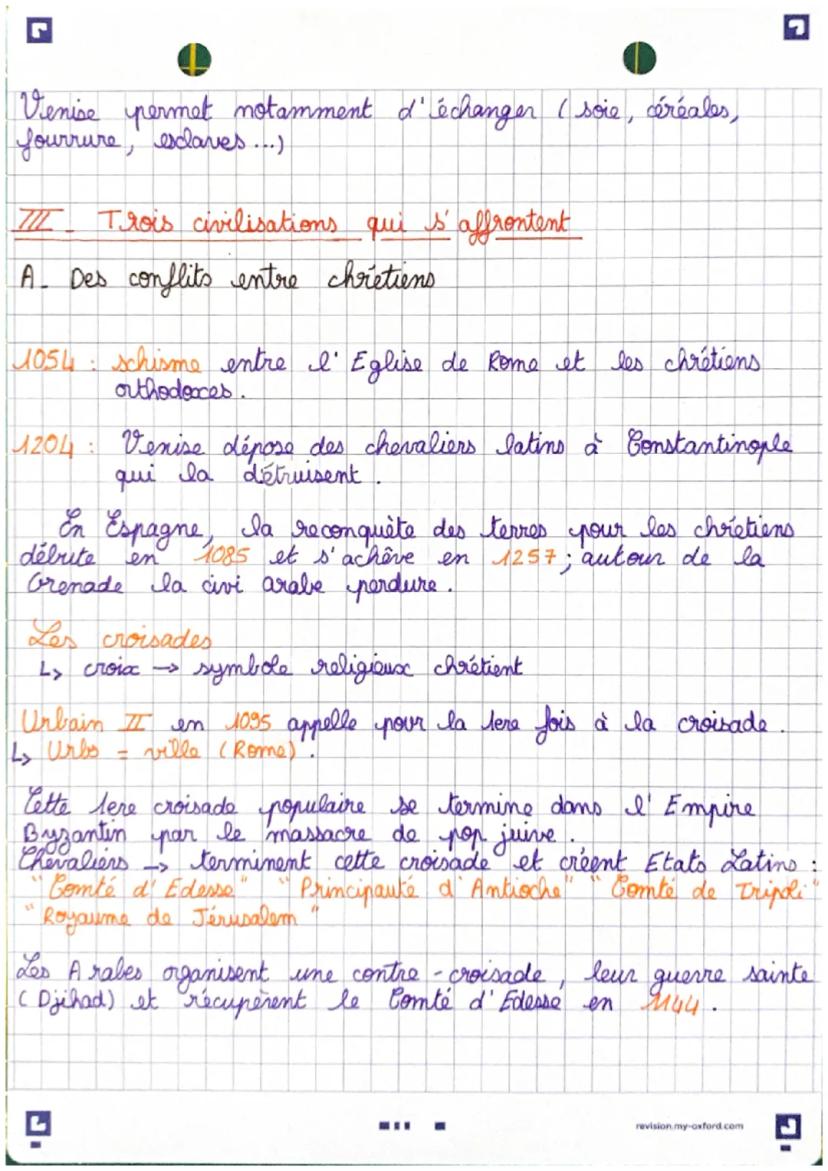 Venise permet notamment d'échanger (soie, céréales,
fourrure, esclaves...)
III_ Trois civilisations qui s'affrontent
A_ Des conflits entre chrétiens
1054 : schisme entre l'Eglise de Rome et les chrétiens
orthodoxes.
1204 : Venise dépose des chevaliers latins à Constantinople
qui la détruisent.
En Espagne, la reconquète des terres pour les chrétiens
débute en 1085 et s'achève en 1257 ; autour de la
Grenade la civi arabe perdure.
Les croisades
↳ croix → symbole religieux chrétient
Urbain II en 1095 appelle pour la 1ere fois à la croisade.
↳ Urbs = ville (Rome).
Cette 1ere croisade populaire se termine dans l'Empire
Byzantin par le massacre de pop juive.
Chevaliers → terminent cette croisade et créent Etats Latins :
"Comté d'Edesse" "Principauté d'Antioche" "Comté de Tripoli"
"Royaume de Jérusalem"
Les Arabes organisent une contre-croisade, leur guerre sainte
(Djihad) et récupèrent le Comté d'Edesse en 1144.
revision.my-oxford.com